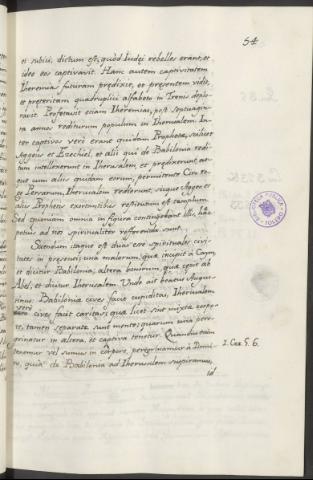 54
et subiit, dictum est, quòd Iudei rebelles erant, et
ideo eos captivavit. Hanc autem captivitatem
Iheremia futuram predixit, et presentem vidit,
et preteritam quadruplici alfabeto in Trenis deplo-
ravit. Profetavit etiam Iheremias, post septuagin-
ta annos rediturum populum in Iherusalem. In-
ter captivos verò erant quidam Prophetæ, scilicet
Aggeus et Ezechiel, et alii qui de Babilonia redi-
tum intellexerunt in Iherusalem et predixerunt
aut cum aliis quidam eorum, permittente Ciro re-
ge Persarum, Iherusalem redierunt, sicque Aggeo et
aliis Prophetis exeuntibus restitutum est templum
Sed quoniam omnia in figura contingebant illis, hæc
potius ad nos spiritualiter referenda sunt.
Sciendum itaque est duas esse spirituales civi-
tates in presenti, una malorum, quæ incepit à Cayn,
et dicitur Babilonia; altera bonorum, quæ cepit ab
Abel, et dicitur Iherusalem. Unde ait beatus Augus-
tinus: Babiloniæ cives facit cupiditas, Iherusalem
vero cives facit caritas; quæ licet sint mixta corpo-
re, tamen separatæ sunt mente; quarum una pere-
grinatur in altera, et captiva tenetur. Quandiu enim
tenemur vel sumus in corpore, peregrinamur à Domi-
no, quia de Babilonia ad Iherusalem suspiramus,
2. Cor 5. 6.
id